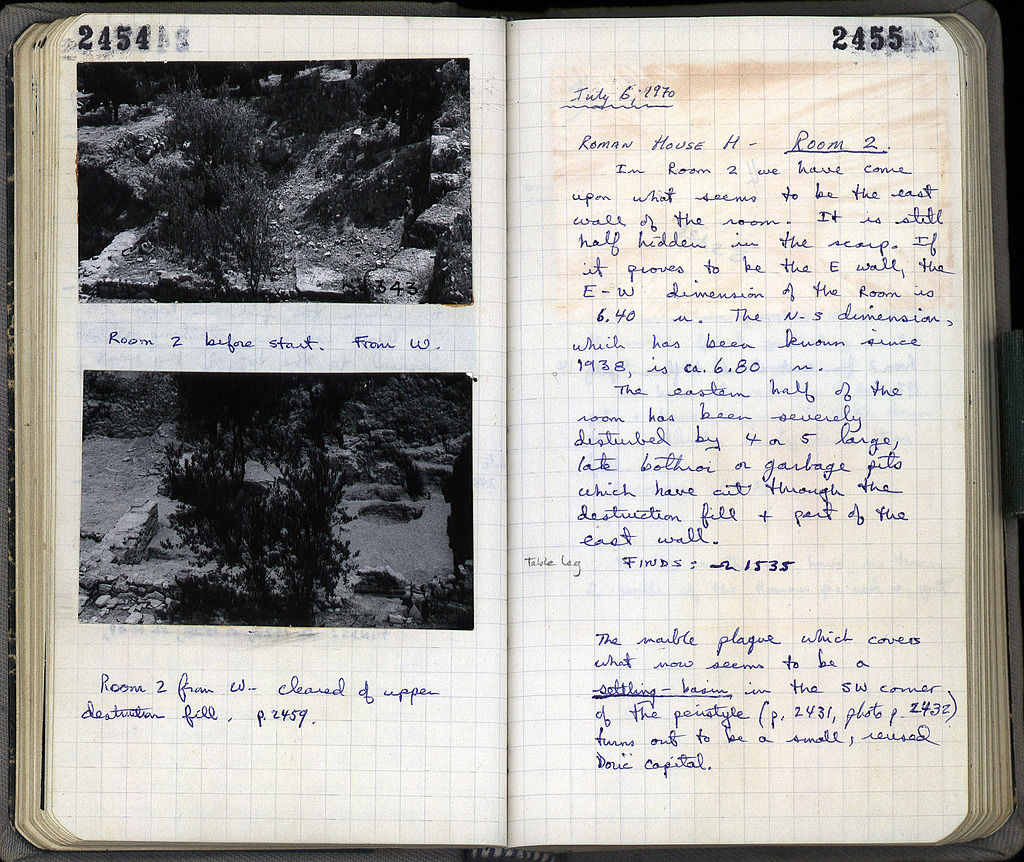 2454
343
Room 2 before start. From W.
Room 2 from W - cleared of upper
destruction fill. p. 2459.
2455
July 6, 1970
ROMAN HOUSE H - Room 2.
In Room 2 we have come
upon what seems to be the east
wall of the room. It is still
half hidden in the scarp. If
it proves to be the E wall, the
E-W dimension of the Room is
6.40 m. The N-S dimension,
which has been known since
1938, is ca. 6.80 m.
The eastern half of the
room has been severely
disturbed by 4 or 5 large,
late bothroi or garbage pits
which have cut through the
destruction fill + part of the
east wall.
Table Leg FINDS: 1535
The marble plaque which covers
what now seems to be a
settling-basin, in the SW corner
of the peristyle (p. 2431, photo p. 2432)
turns out to be a small, reused
Doric capital.